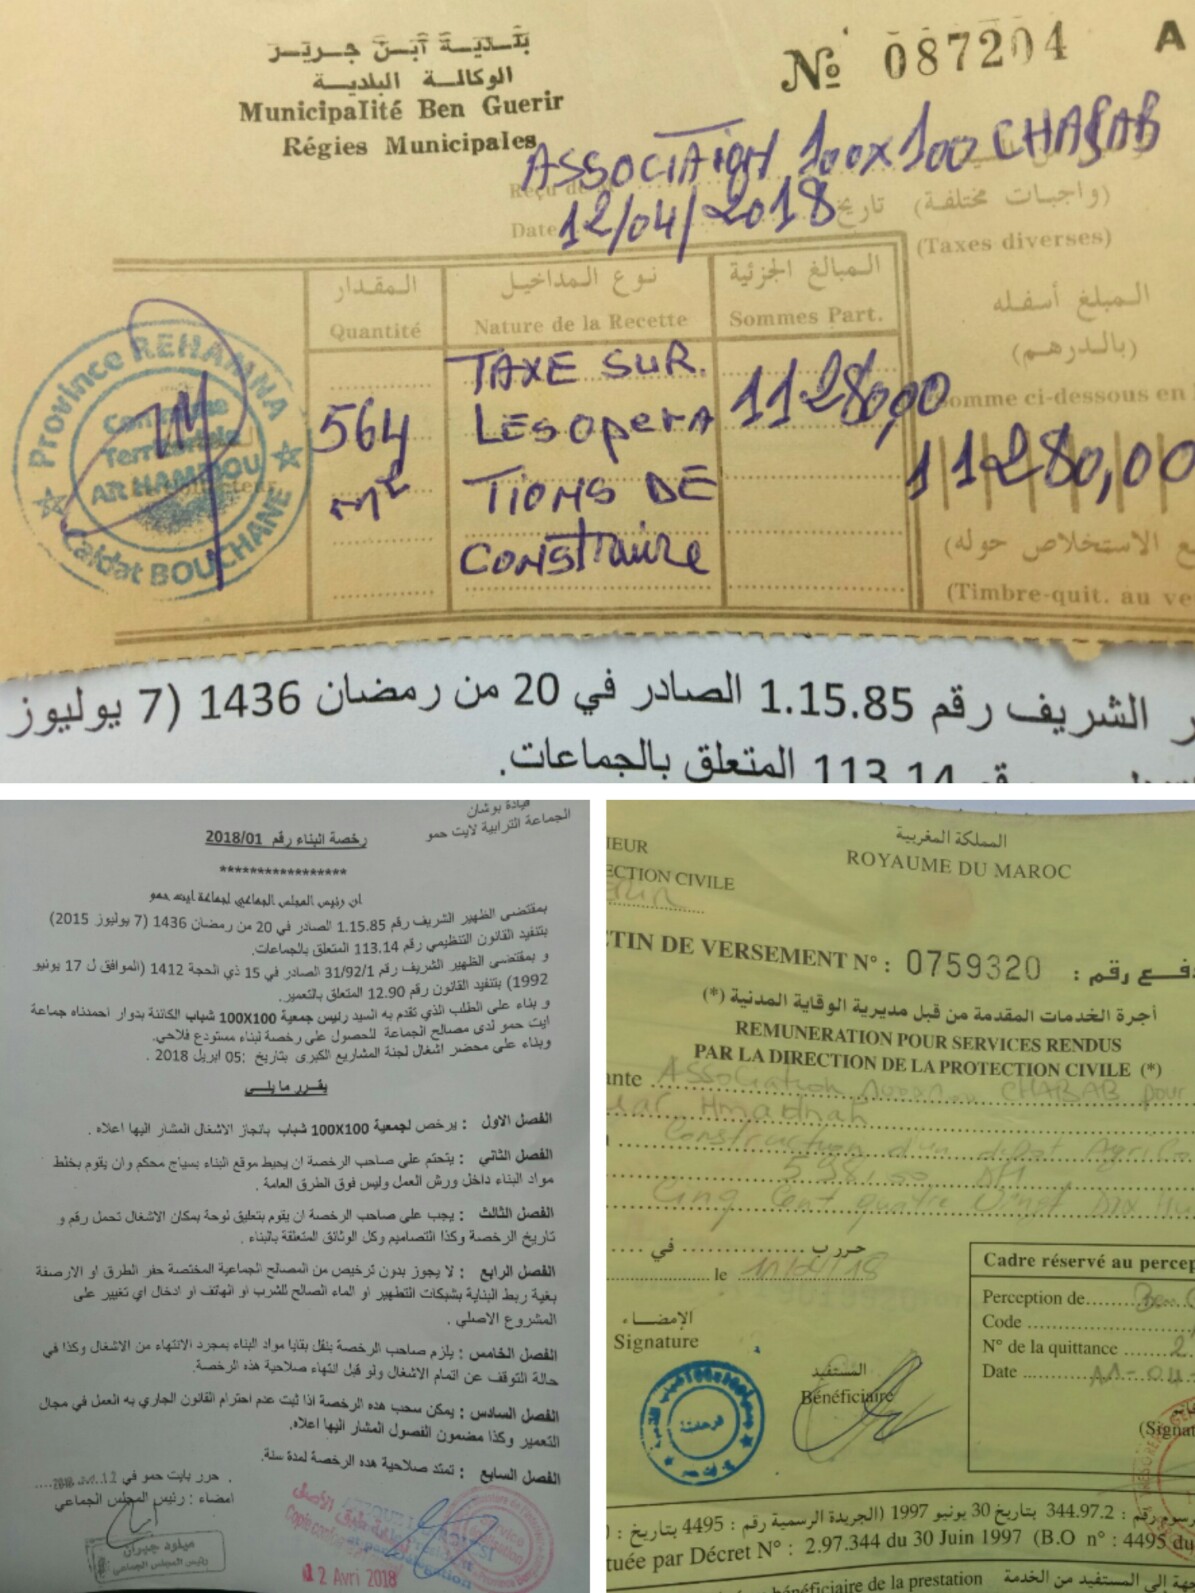 بلدية ابن جرير
الوكالة البلدية
Municipalité Ben Guerir
Régies Municipales
№ 087204 A
ASSOCIATION 100x100 CHABAB
Reçu de M
(واجبات مختلفة)
Date 12/04/2018 تاريخ
(Taxes diverses)
المقدار
نوع المداخيل
المبالغ الجزئية
Quantité
Nature de la Recette
Sommes Part.
المبلغ أسفله
(بالدرهم)
564 m²
TAXE SUR.
LES OPERA
TIONS DE
CONSTRUIRE
11280,00
Somme ci-dessous en
11280,00
الاستخلاص حوله)
(Timbre-quit. au ve
Province REHAMNA
Commune
Territoriale
AR HAMDOU
Caidat BOUCHANE
الشريف رقم 1.15.85 الصادر في 20 من رمضان 1436 (7 يوليوز
113.14 المتعلق بالجماعات.
قيادة بوشان
الجماعة الترابية لايت حمو
رخصة البناء رقم 2018/01
*****************
ان رئيس المجلس الجماعي لجماعة ايت حمو
بمقتضى الظهير الشريف رقم 1.15.85 الصادر في 20 من رمضان 1436 (7 يوليوز 2015)
بتنفيد القانون التنظيمي رقم 113.14 المتعلق بالجماعات.
و بمقتضى الظهير الشريف رقم 31/92/1 الصادر في 15 ذي الحجة 1412 (الموافق ل 17 يونيو
1992) بتنفيد القانون رقم 12.90 المتعلق بالتعمير.
و بناء على الطلب الذي تقدم به السيد رئيس جمعية 100X100 شباب الكائنة بدوار احمدناه جماعة
ايت حمو لدى مصالح الجماعة للحصول على رخصة لبناء مستودع فلاحي.
وبناء على محضر اشغال لجنة المشاريع الكبرى بتاريخ :05 ابريل 2018 .
يقرر ما يلي
الفصل الاول : يرخص لجمعية 100X100 شباب بانجاز الاشغال المشار اليها اعلاه .
الفصل الثاني : يتحتم على صاحب الرخصة ان يحيط موقع البناء بسياج محكم وان يقوم بخلط
مواد البناء داخل ورش العمل وليس فوق الطرق العامة .
الفصل الثالث : يجب على صاحب الرخصة ان يقوم بتعليق لوحة بمكان الاشغال تحمل رقم و
تاريخ الرخصة وكذا التصاميم وكل الوثائق المتعلقة بالبناء .
الفصل الرابع : لا يجوز بدون ترخيص من المصالح الجماعية المختصة حفر الطرق او الارصفة
بغية ربط البناية بشبكات التطهير او الماء الصالح للشرب او الهاتف او ادخال اي تغيير على
المشروع الاصلي .
الفصل الخامس : يلزم صاحب الرخصة بنقل بقايا مواد البناء بمجرد الانتهاء من الاشغال وكذا في
حالة التوقف عن اتمام الاشغال ولو قبل انتهاء صلاحية هده الرخصة.
الفصل السادس : يمكن سحب هده الرخصة اذا ثبت عدم احترام القانون الجاري به العمل في مجال
التعمير وكذا مضمون الفصول المشار اليها اعلاه.
الفصل السابع : تمتد صلاحية هده الرخصة لمدة سنة.
حرر بايت حمو في
امضاء : رئيس المجلس الجماعي
ميلود جبران
رئيس المجلس الجماعي
12 Avri 2018
المملكة المغربية
ROYAUME DU MAROC
IEUR
ECTION CIVILE
TIN DE VERSEMENT N° : 0759320 دفع رقم :
أجرة الخدمات المقدمة من قبل مديرية الوقاية المدنية (*)
REMUNERATION POUR SERVICES RENDUS
PAR LA DIRECTION DE LA PROTECTION CIVILE (*)
ante Association CHABAB pour
Hmadnah
Construction d'un dépot Agrico
598,00 DH
Cinq Cent quatre Vingt Dix
حرر ب في
le 11/04/18
الإمضاء
Signature
المستفيد
Bénéficiaire
Cadre réservé au percep
Perception de Ben G
Code
N° de la quittance 2
Date 11-04-
(Signat
رسوم رقم : 344.97.2 بتاريخ 30 يونيو 1997 (الجريدة الرسمية رقم : 4495 بتاريخ :
tuée par Décret N° : 2.97.344 du 30 Juin 1997 (B.O n° : 4495 du
إلى المستفيد من الخدمة
bénéficiaire de la prestation